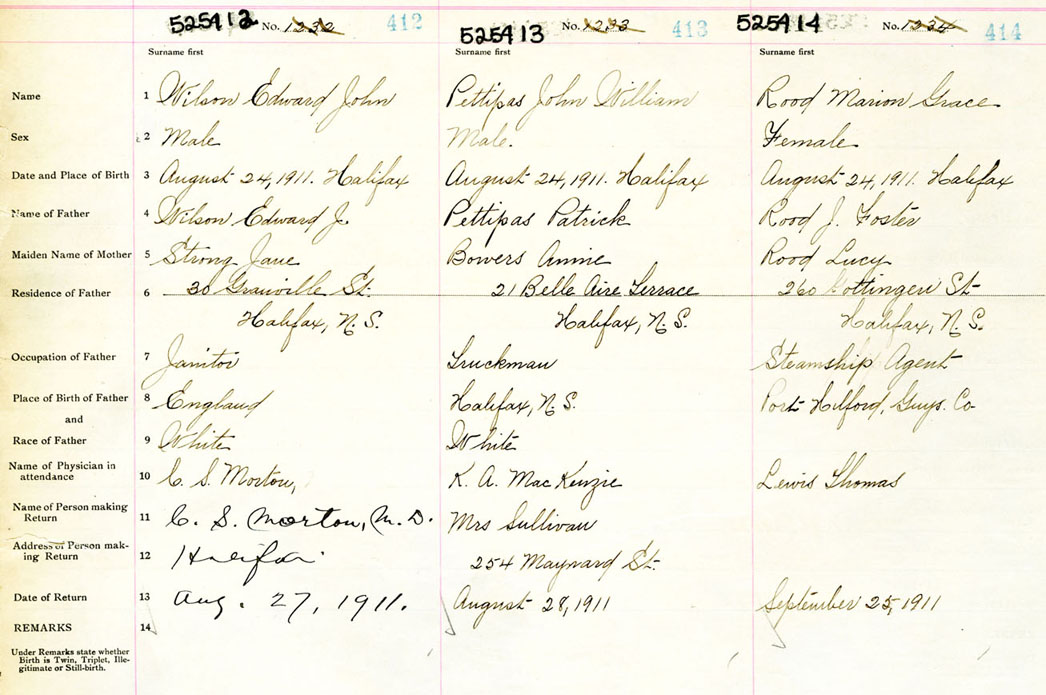 525412 No. 1232 412 525413 No. 1233 413 525414 No. 1234 414
Surname first Surname first Surname first
Name 1 Wilson Edward John Pettipas John William Rood Marion Grace
Sex 2 Male Male. Female
Date and Place of Birth 3 August 24, 1911. Halifax August 24, 1911. Halifax August 24, 1911. Halifax
Name of Father 4 Wilson Edward J. Pettipas Patrick Rood J. Foster
Maiden Name of Mother 5 Strong Jane Bowers Annie Rood Lucy
Residence of Father 6 30 Granville St. 21 Belle Aire Terrace 260 Gottingen St
Halifax, N.S. Halifax, N.S. Halifax, N.S.
Occupation of Father 7 Janitor Truckman Steamship Agent
Place of Birth of Father 8 England Halifax, N.S. Port Hilford, Guys. Co
and
Race of Father 9 White White
Name of Physician in
attendance 10 C. S. Morton, K. A. MacKenzie Lewis Thomas
Name of Person making
Return 11 C. S. Morton, M.D. Mrs Sullivan
Address of Person mak-
ing Return 12 Halifax 254 Maynard St.
Date of Return 13 Aug. 27, 1911. August 28, 1911 September 25, 1911
REMARKS 14
Under Remarks state whether
Birth is Twin, Triplet, Ille-
gitimate or Still-birth.